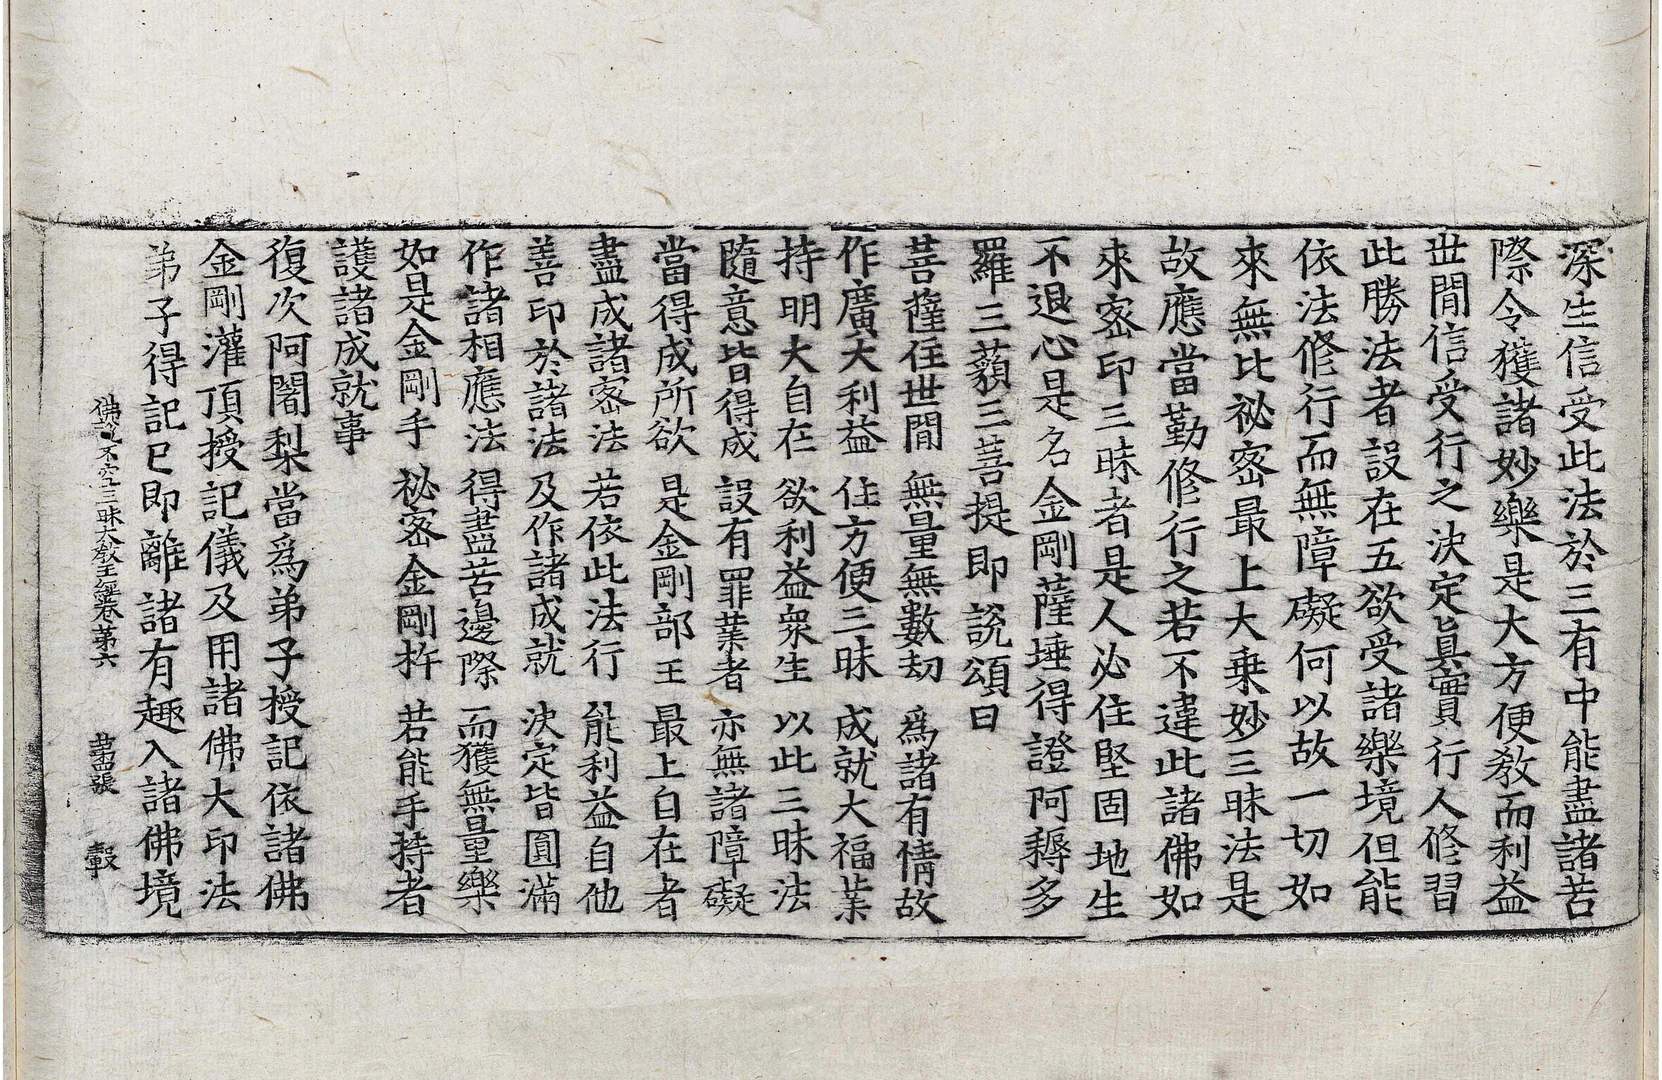 深生信受此法於三有中能盡諸苦
際令獲諸妙樂是大方便教而利益
世間信受行之決定眞實行人修習
此勝法者設在五欲受諸樂境但能
依法修行而無障礙何以故一切如
來無比祕密最上大乘妙三昧法是
故應當勤修行之若不違此諸佛如
來密印三昧者是人必住堅固地生
不退心是名金剛薩埵得證阿耨多
羅三藐三菩提即説頌曰
菩薩住世間 無量無數劫 爲諸有情故
作廣大利益 住方便三昧 成就大福業
持明大自在 欲利益衆生 以此三昧法
隨意皆得成 設有罪業者 亦無諸障礙
當得成所欲 是金剛部王 最上自在者
盡成諸密法 若依此法行 能利益自他
善印於諸法 及作諸成就 決定皆圓滿
作諸相應法 得盡苦邊際 而獲無量樂
如是金剛手 祕密金剛杵 若能手持者
護諸成就事
復次阿闍梨當爲弟子授記依諸佛
金剛灌頂授記儀及用諸佛大印法
弟子得記已即離諸有趣入諸佛境
佛説不空三昧大教王經卷第六 張 轂